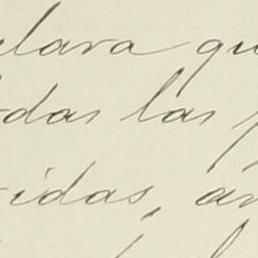 clara qu
das las p
idas, an